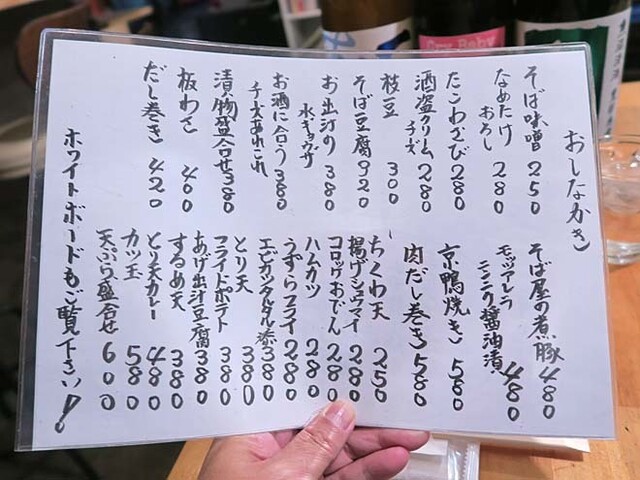 おしながき
そば味噌 250
なめたけおろし 280
たこわさび 280
酒盗クリームチーズ 280
枝豆 300
そば豆腐 320
お出汁の水ギョウザ 380
お酒に合うチーズあれこれ 380
漬物盛合せ 380
板わさ 400
だし巻き 420
そば屋の煮豚 480
モッツァレラニンニク醤油漬 480
京鴨焼き 580
肉だし巻き 580
ちくわ天 250
揚げシュウマイ 280
コロッケおでん 280
ハムカツ 280
うずらフライ 280
エビカツタルタル添 380
とり天 380
フライドポテト 380
あげ出汁豆腐 380
するめ天 380
とり天カレー 480
カツ玉 580
天ぷら盛合せ 600
ホワイトボードもご覧下さい!
Cry Baby